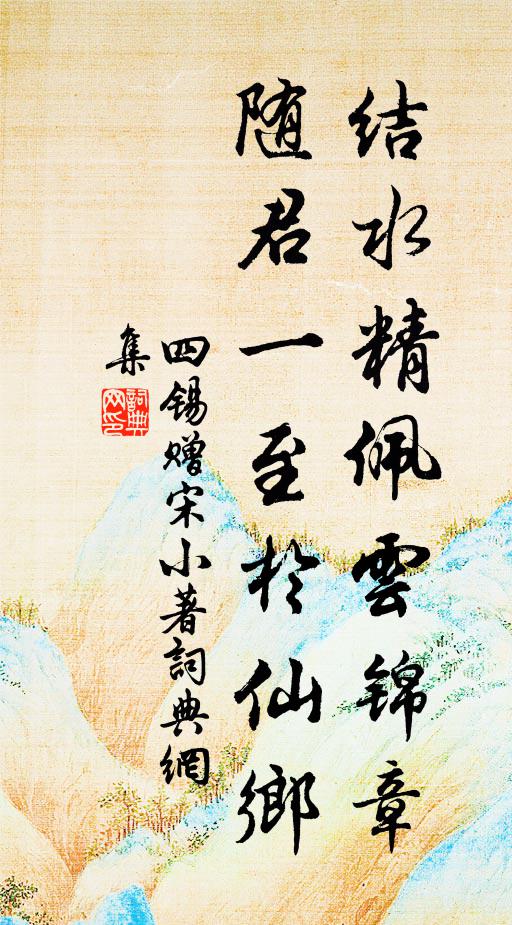 结水精佩雲锦章
随君一至於仙鄉
四锡赠宋小著詞典網
集
詞典
网印